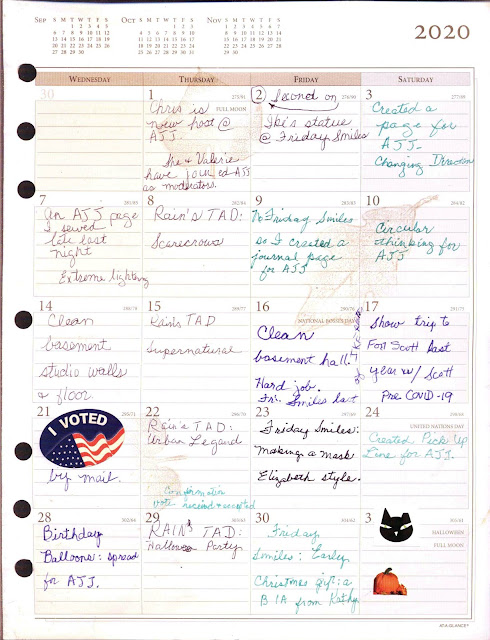 SEP S M T W T F S
1 2 3 4 5
6 7 8 9 10 11 12
13 14 15 16 17 18 19
20 21 22 23 24 25 26
27 28 29 30
OCT S M T W T F S
1 2 3
4 5 6 7 8 9 10
11 12 13 14 15 16 17
18 19 20 21 22 23 24
25 26 27 28 29 30 31
NOV S M T W T F S
1 2 3 4 5 6 7
8 9 10 11 12 13 14
15 16 17 18 19 20 21
22 23 24 25 26 27 28
29 30
2020
WEDNESDAY THURSDAY FRIDAY SATURDAY
30
1 275/91
FULL MOON
Chris is
new host @
AJJ.
She & Valerie
have joined AJJ
as moderators.
2 276/90
Second on
Iki's statue
@ Friday Smiles
3 277/89
Created a
page for
AJJ-
Changing Direction
7 281/85
An AJJ page
I sewed
late last
night
Extreme lighting
8 282/84
Rain's TAD:
Scarecrows
9 283/83
To Friday Smiles
so I created a
journal page
for AJJ
10 284/82
Circular
thinking for
AJJ
14 288/78
Clean
basement
studio walls
& floor
15 289/77
Rain's TAD
Supernatural
16 290/76
NATIONAL BOSS'S DAY
Clean
basement hall.
Hard job.
Fri. Smiles last
17 291/75
Show trip to
Fort Scott last
year w/ Scott
Pre COVID-19
21 295/71
I VOTED
by mail.
22 296/70
Rain's TAD:
Urban Legend
Confirmation
vote received & accepted
23 297/69
Friday Smiles:
Making a mask
Elizabeth style.
24 298/68
UNITED NATIONS DAY
Created Pick Up
Line for AJJ.
28 302/64
Birthday
Balloons: spread
for AJJ.
29 303/63
RAIN's TAD:
Halloween Party
30 304/62
Friday
Smiles: Early
Christmas gift: a
BIA from Kathy.
3 305/61
HALLOWEEN
FULL MOON
AT-A-GLANCE®